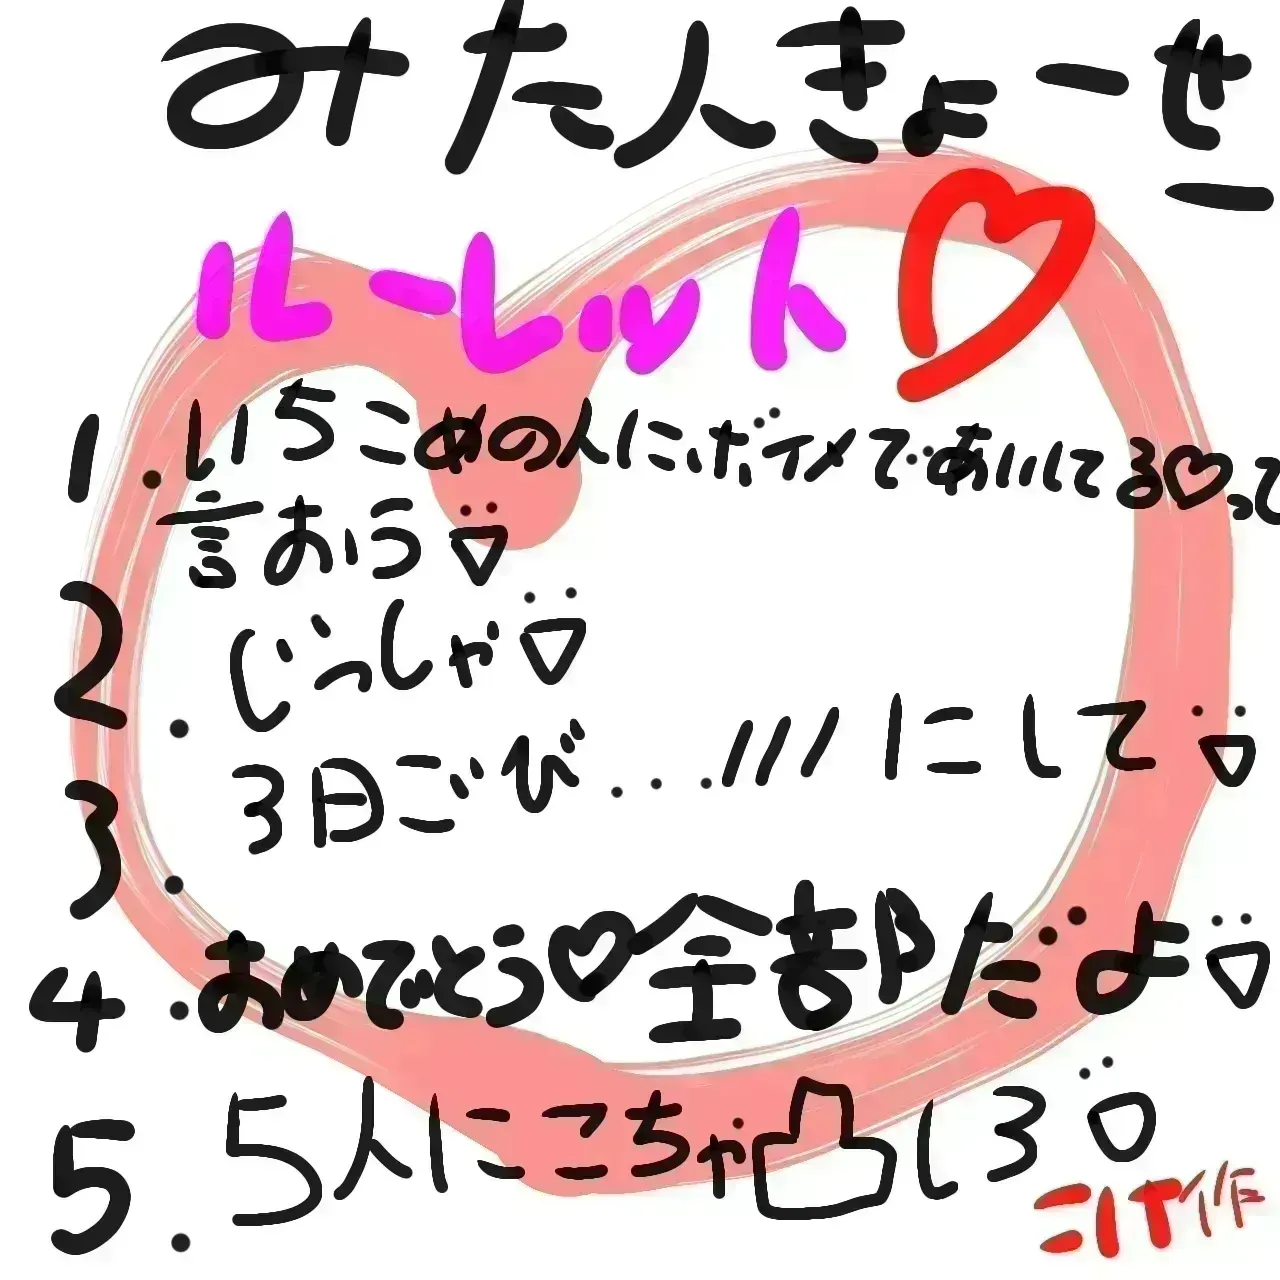 みた人きょーせ
ー
ルーレット♡
1.いちこめの人にボイメであいしてる♡って
言おう
2.じっしゃ
3.3日ごび...///にして
4.おめでとう♡全部だよ
5.5人にこちゃ凸しろ
こけ作